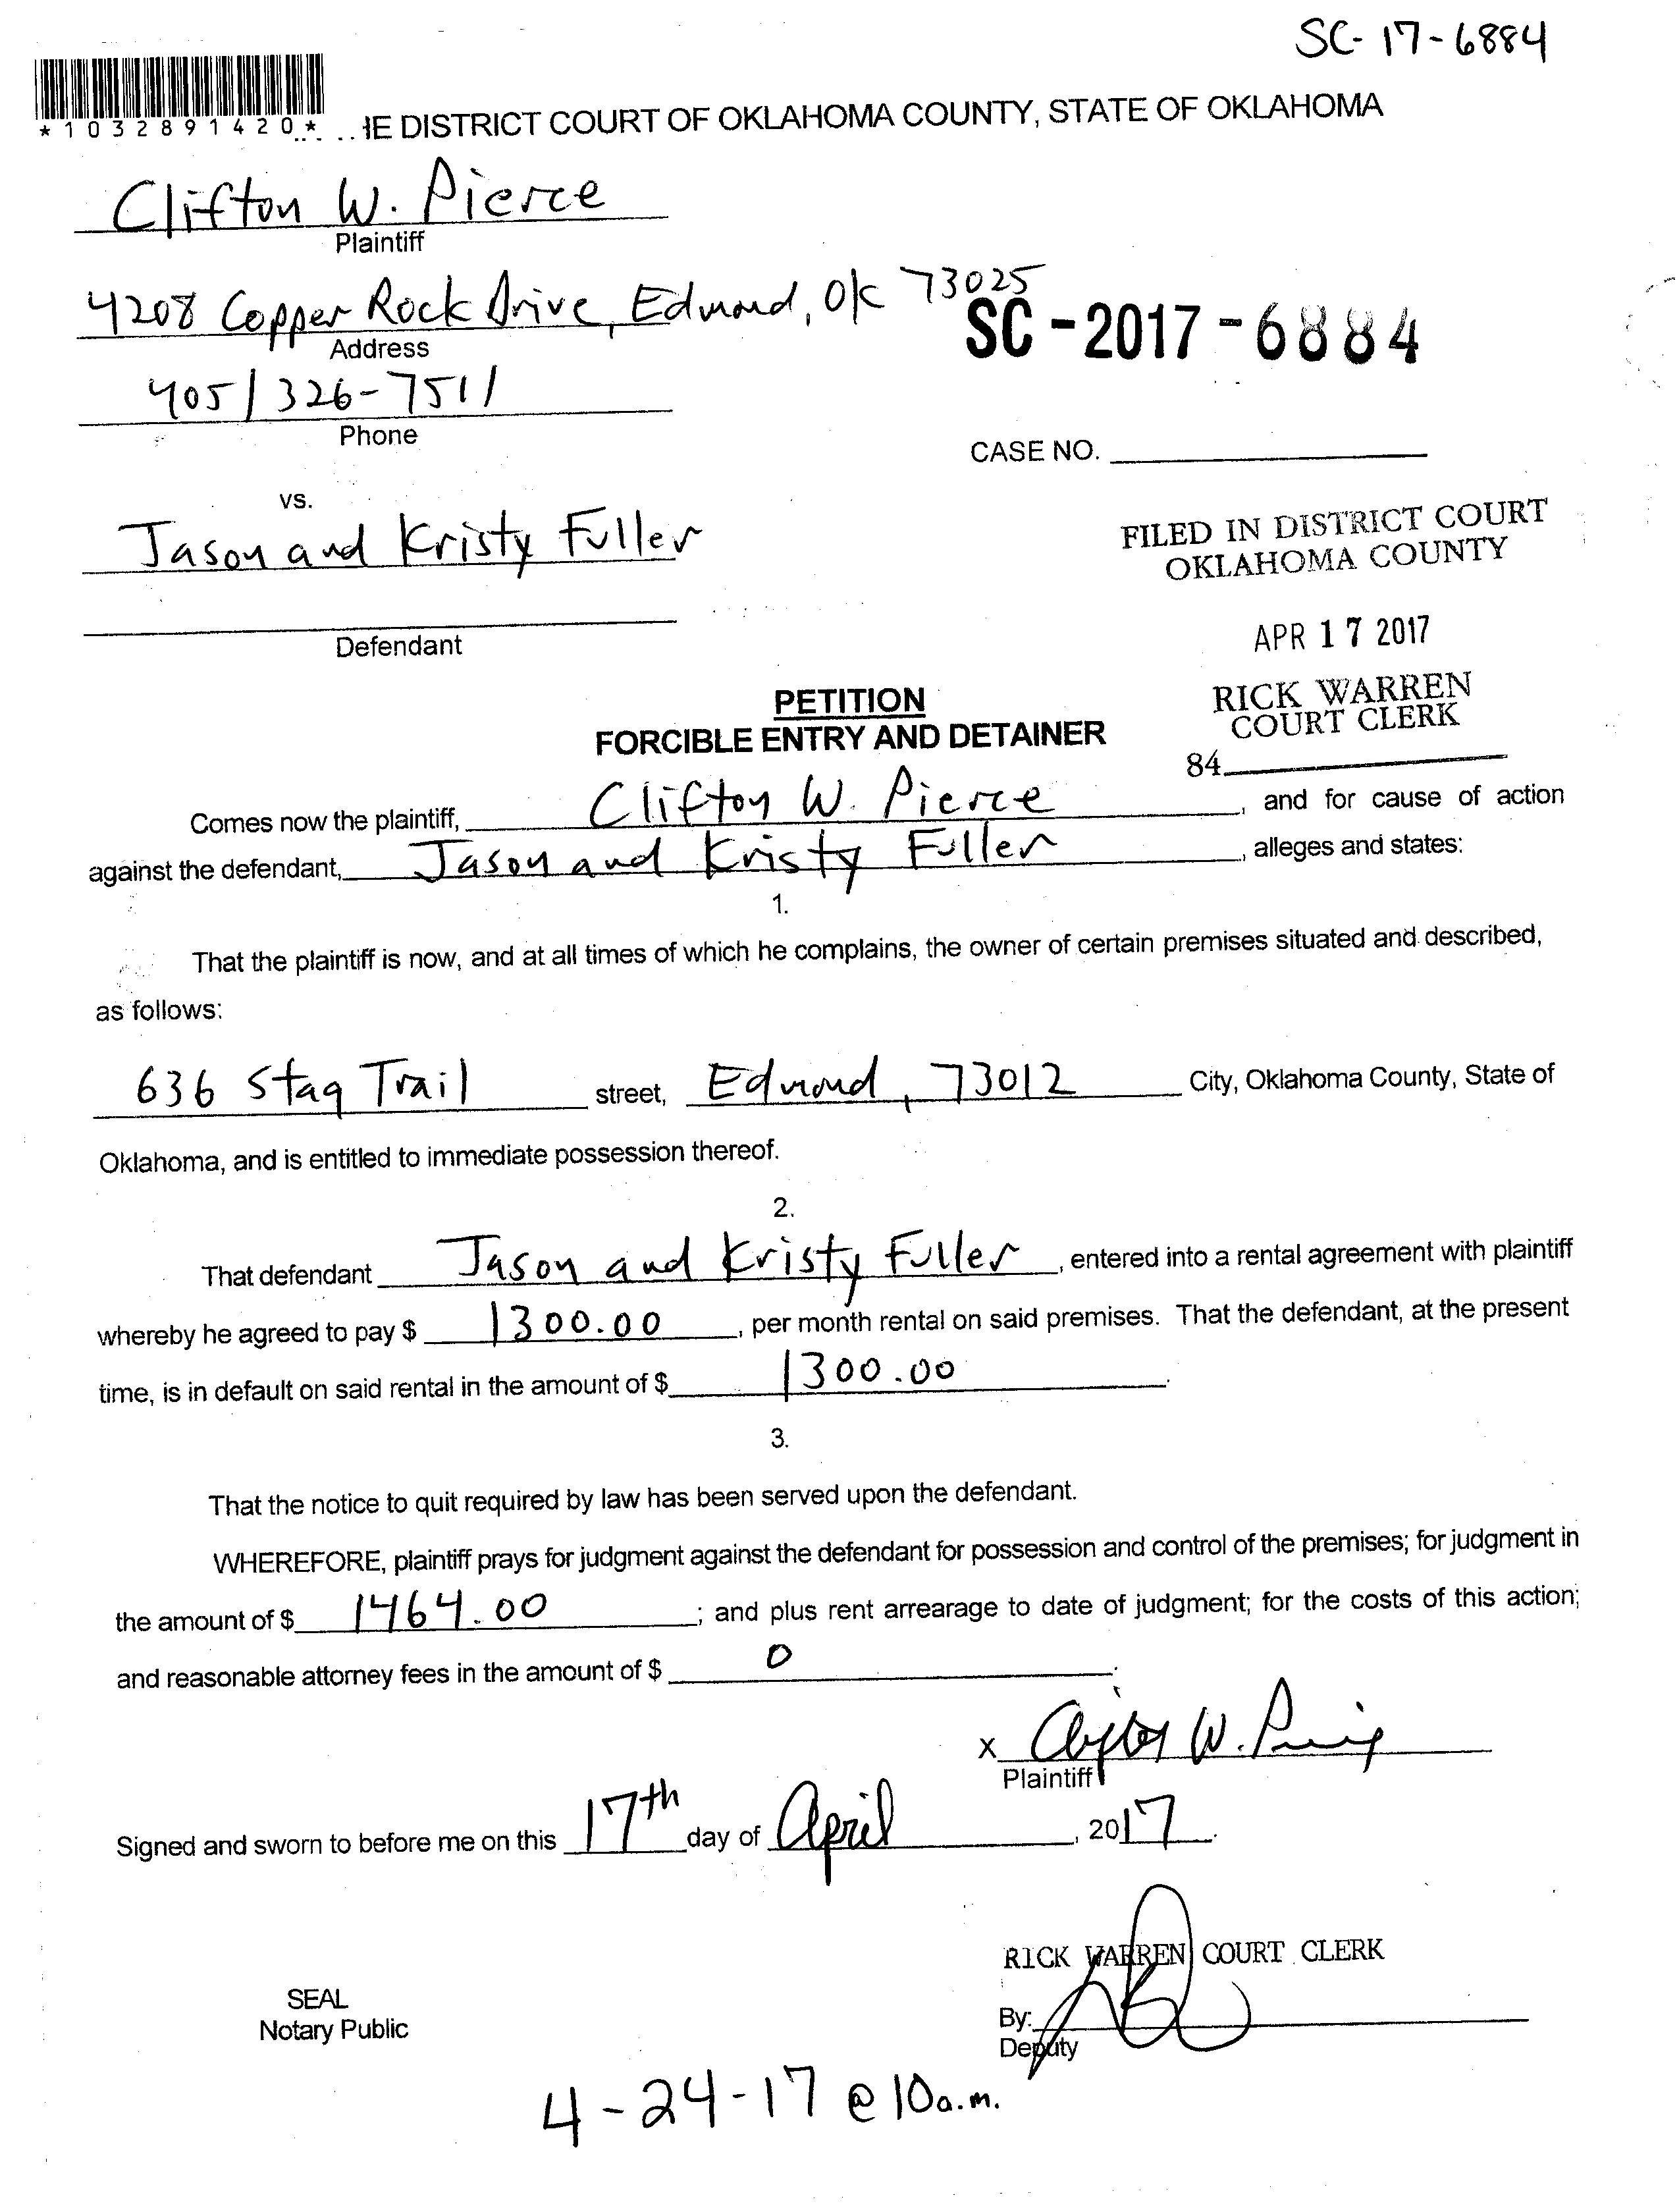 SC-17-6884
*1032891420*
HE DISTRICT COURT OF OKLAHOMA COUNTY, STATE OF OKLAHOMA
Clifton W. Pierce
Plaintiff
4208 Copper Rock Drive, Edmond, OK 73025
SC-2017-6884
Address
405/326-7511
Phone
CASE NO.
vs.
Jason and Kristy Fuller
FILED IN DISTRICT COURT
OKLAHOMA COUNTY
Defendant
APR 17 2017
PETITION
RICK WARREN
COURT CLERK
FORCIBLE ENTRY AND DETAINER
84
Comes now the plaintiff, Clifton W. Pierce, and for cause of action
against the defendant, Jason and Kristy Fuller, alleges and states:
1.
That the plaintiff is now, and at all times of which he complains, the owner of certain premises situated and described,
as follows:
636 Stag Trail street, Edmond, 73012 City, Oklahoma County, State of
Oklahoma, and is entitled to immediate possession thereof.
2.
That defendant Jason and Kristy Fuller, entered into a rental agreement with plaintiff
whereby he agreed to pay $ 1300.00, per month rental on said premises. That the defendant, at the present
time, is in default on said rental in the amount of $ 1300.00.
3.
That the notice to quit required by law has been served upon the defendant.
WHEREFORE, plaintiff prays for judgment against the defendant for possession and control of the premises; for judgment in
the amount of $ 1464.00; and plus rent arrearage to date of judgment; for the costs of this action;
and reasonable attorney fees in the amount of $ 0.
X Clifton W. Pierce
Plaintiff
Signed and sworn to before me on this 17th day of April, 2017.
RICK WARREN COURT CLERK
SEAL
Notary Public
By:
Deputy
4-24-17 @ 10a.m.